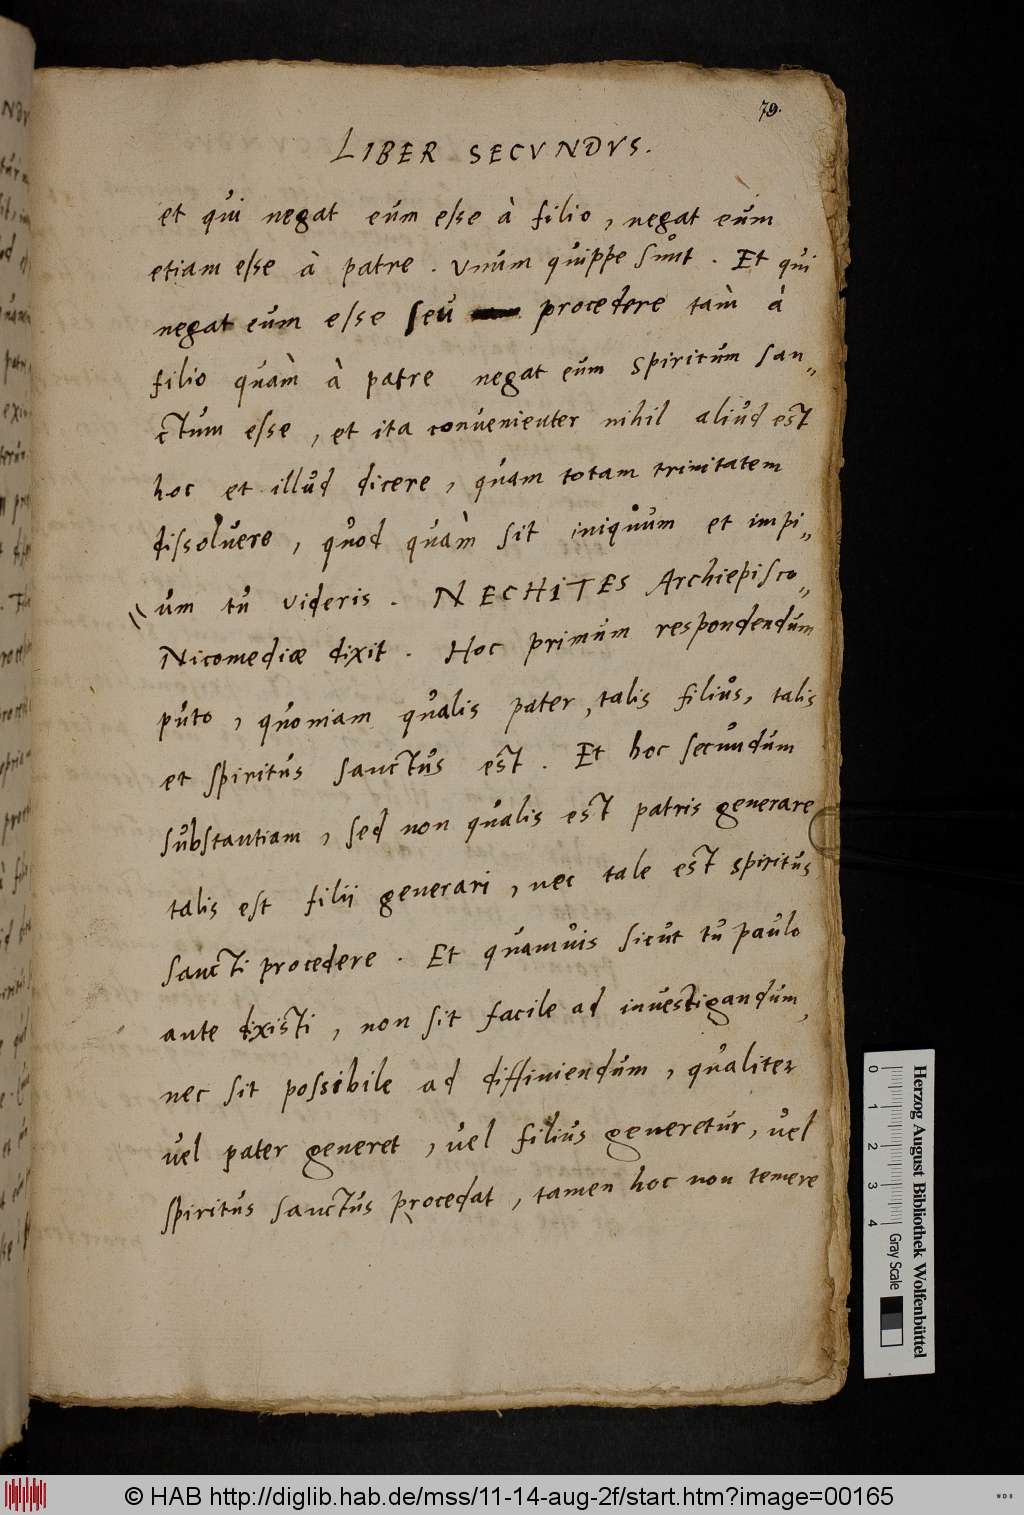 79.
LIBER SECVNDVS.
et qui negat eum esse à filio, negat eum
etiam esse à patre. Vnum quippe sunt. Et qui
negat eum esse seu procedere tam à
filio quàm à patre negat eum spiritum san„
ctum esse, et ita convenienter nihil aliud est
hoc et illud dicere, quam totam trinitatem
dissoluere, quod quàm sit iniquum et impi„
um tu videris. NECHITES Archiepisco„
Nicomediæ dixit. Hoc primum respondendum
puto, quoniam qualis pater, talis filius, talis
et spiritus sanctus est. Et hoc secundum
substantiam, sed non qualis est patris generare
talis est filii generari, nec tale est spiritus
sancti procedere. Et quamuis sicut tu paulo
ante dixisti, non sit facile ad investigandum,
nec sit possibile ad diffiniendum, qualiter
vel pater generet, vel filius generetur, vel
spiritus sanctus procedat, tamen hoc non temere
Herzog August Bibliothek Wolfenbüttel
0 1 2 3 4 Gray Scale
© HAB http://diglib.hab.de/mss/11-14-aug-2f/start.htm?image=00165